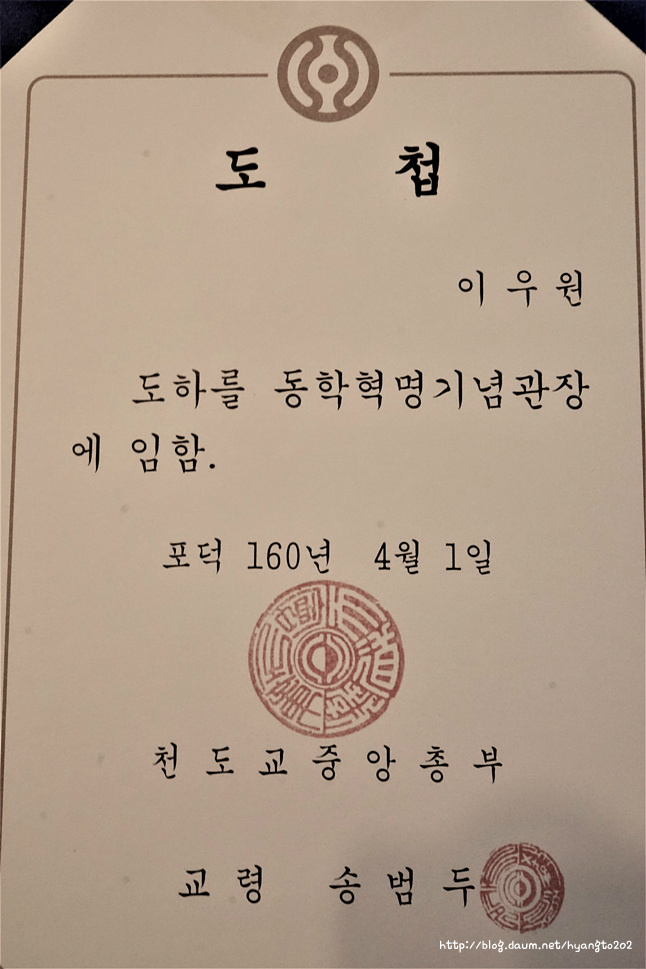 도 첩
이우원
도하를 동학혁명기념관장
에 임함.
포덕 160년 4월 1일
천도교중앙총부
교령 송범두
http://blog.daum.net/hyangto202